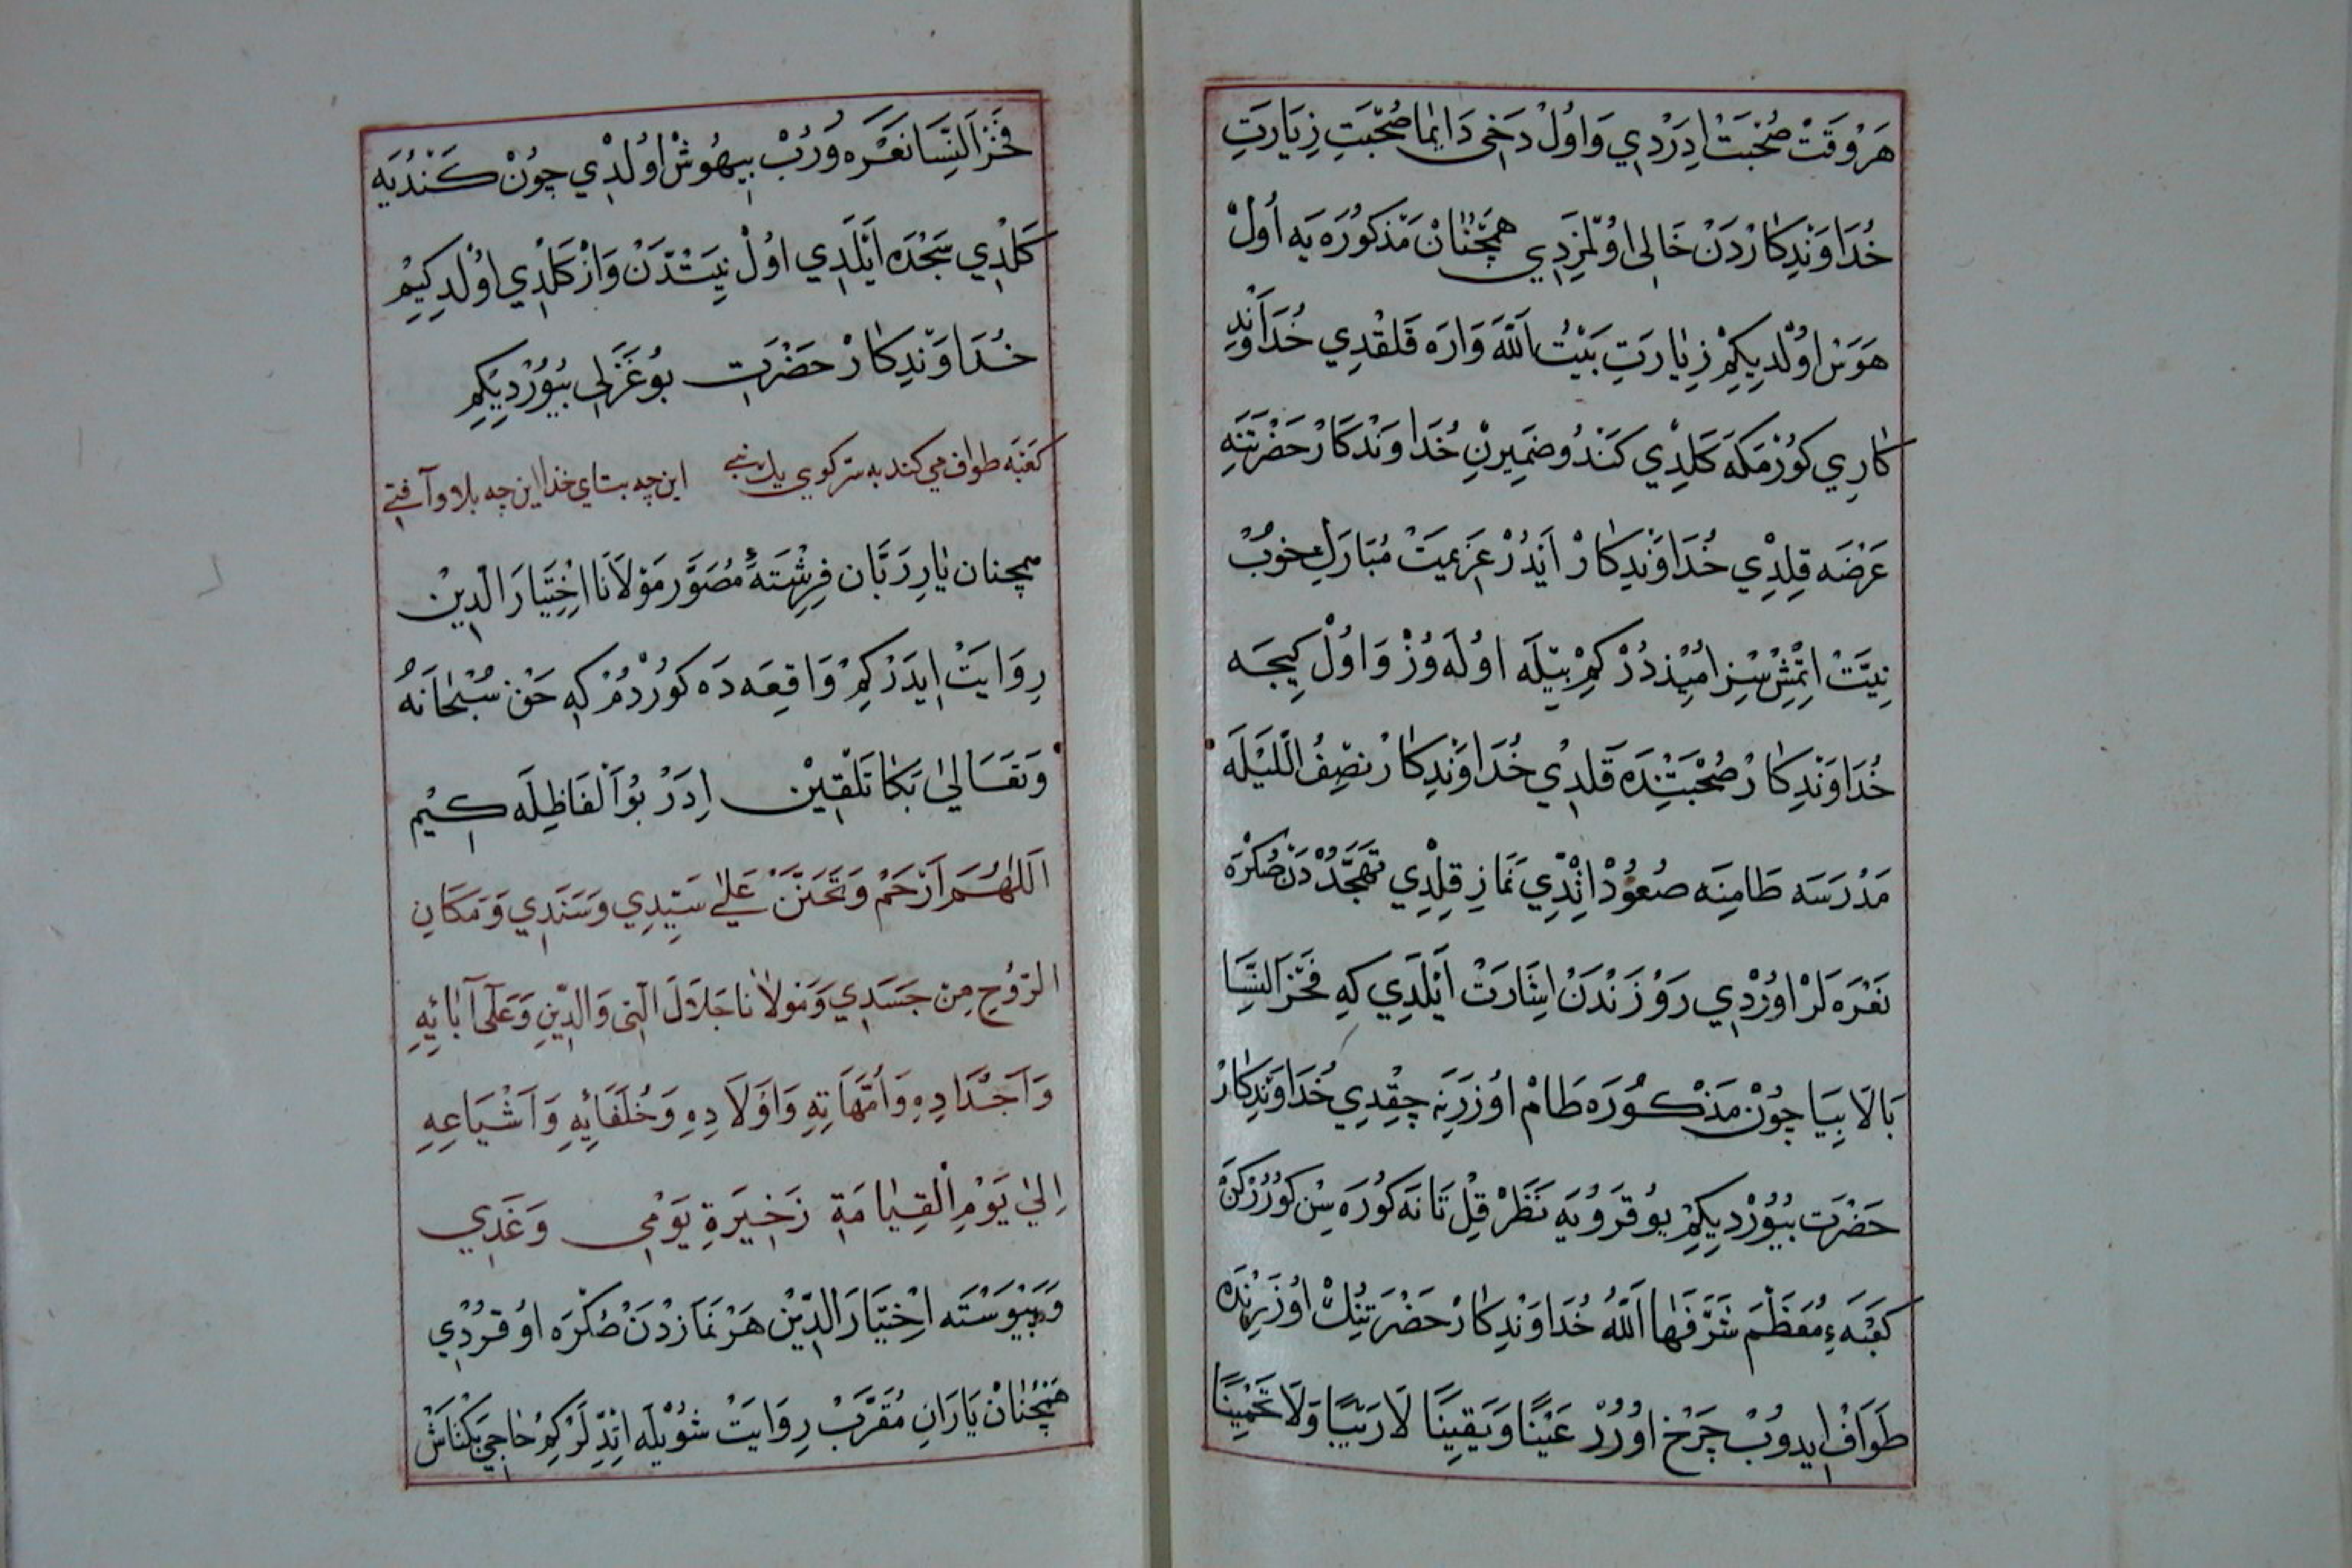 هَرْوَقَتْ صُحْبَتْ ادِرْدِي وَاوُلْ دَخِى دَايِمَا صُحْبَتِ زِيَارَتِ
خُدَاوَنْدِكَارْدَنْ خَالِى اوُلْمَزِدِي هَمْچُنَانْ مَذْكُورَه يَه اُولْ
هَوَسْ اوُلْدِيكِمْ زِيَارَتِ بَيْتُ اَللّٰهَ وَارَه قَلقْدِي خُدَاوَنْدِ
كَارِي كُورْمَكَه كَلْدِي كَنْدُو ضَمِيرِنِ خُدَاوَنْدِكَارْ حَضْرَتْنَه
عَرْضَه قِلِدْي خُدَاوَنْدِكَارْ اَيْدُرْ عَزِيمَتْ مُبَارَكِ خُوبْ
نِيَّتْ اتِمْشْسِزْ امُيِذْدُرْ كِمْ بِيَلَه اوُلَه وُزْ وَاوُلْ كِيجَه
خُدَاوَنْدِكَارْ صُحْبَتِنْدَه قَلدِي خُدَاوَنْدِكَارْ نِصْفُ اللَّيْلَه
مَدْرَسَه طَامِنَه صُعوُدْ اتْدِي نَمَازِ قِلِدْي تَهَجُّدْدَنْ صُكْرَه
نَعْرَه لَرْ اوُرْدِي رَوْزَنْدَنْ اشَارَتْ اَيْلَدِي كِه فَخْرَ النِّسَا
بَالَا بِيَا چُونْ مَذْكُورَه طَامْ اوُزَرِنَه چِقِدِي خُدَاوَنْدِكَارْ
حَضْرَتِ بُيُورْدِيكِمْ يوُقَرُويَه نَظَرْ قِلْ تَا نَه كُورَه سِنْ كُورُرْكِنْ
كَعْبَهءِ مُعَظَّمَ شَرَّفَهَا اللّٰهُ خُدَاوَنْدِكَارْ حَضْرَتِنُكْ اوُزَرِنْدَه
طَوَافْ ايِدوُبْ چَرْخ اوُرُرْ عَيْنًا وَيَقِينًا لَا رَيْبًا وَلَا تَخْمِينًا
فَخْرَ النِّسَا نَعْرَه وُرُبْ بِيهُوشْ اوُلدْي چُونْ كَنْدُيَه
كَلْدِي سَجْدَه اَيْلَدِي اوُلْ نِيَتْدَنْ وَازْ كَلْدِي اوُلْدِ كِيمْ
خُدَاوَنْدِكَارْ حَضْرَتِ بوُ غَزَلِى بُيُورْدِيكِمْ
كَعْبَه طواف مى كند به سر كوى يك بتى اين چه بتست اى خدا اين چه بلا و آفتى
همچنان يَارِ رَبَّان فِرِشْتَهءِ مُصَوَّر مَوْلَانَا اخْتِيَارَ الدِّينْ
رِوَايَتْ ايِدَرْكِمْ وَاقِعَه دَه كُورْدُمْ كِه حَقْ سُبْحَانَهُ
وَتَعَالَى بَكَا تَلْقِيْنْ ادِرْ بوُ اَلْفَاظِلَه كِيم
اَللّٰهُمَّ اَرْحَمْ وَتَحَنَّنْ عَلَى سَيِّدِي وَسَنَدِي وَمَكَانِ
الرُّوحِ مِنْ جَسَدِي وَمَوْلَانَا جَلَالَ الْحَقِ وَالدِّينِ وَعَلَى آبَائِهِ
وَاَجْدَادِهِ وَاُمَّهَاتِهِ وَاَوْلَادِهِ وَخُلَفَائِهِ وَاَشْيَاعِهِ
اِلَى يَوْمِ الْقِيَامَةِ ذَخِيرَةِ يَوْمِى وَغَدِي
وَپَيْوَسْتَه اخْتِيَارَ الدِّينْ هَرْ نَمَازْدَنْ صُكْرَه اوُقُرْدِي
هَمْچُنَانْ يَارَانِ مُقَرَّبْ رِوَايَتْ شُويْلَه اتْدِلَرْكِمْ حَاجِى بَكْتَاشْ